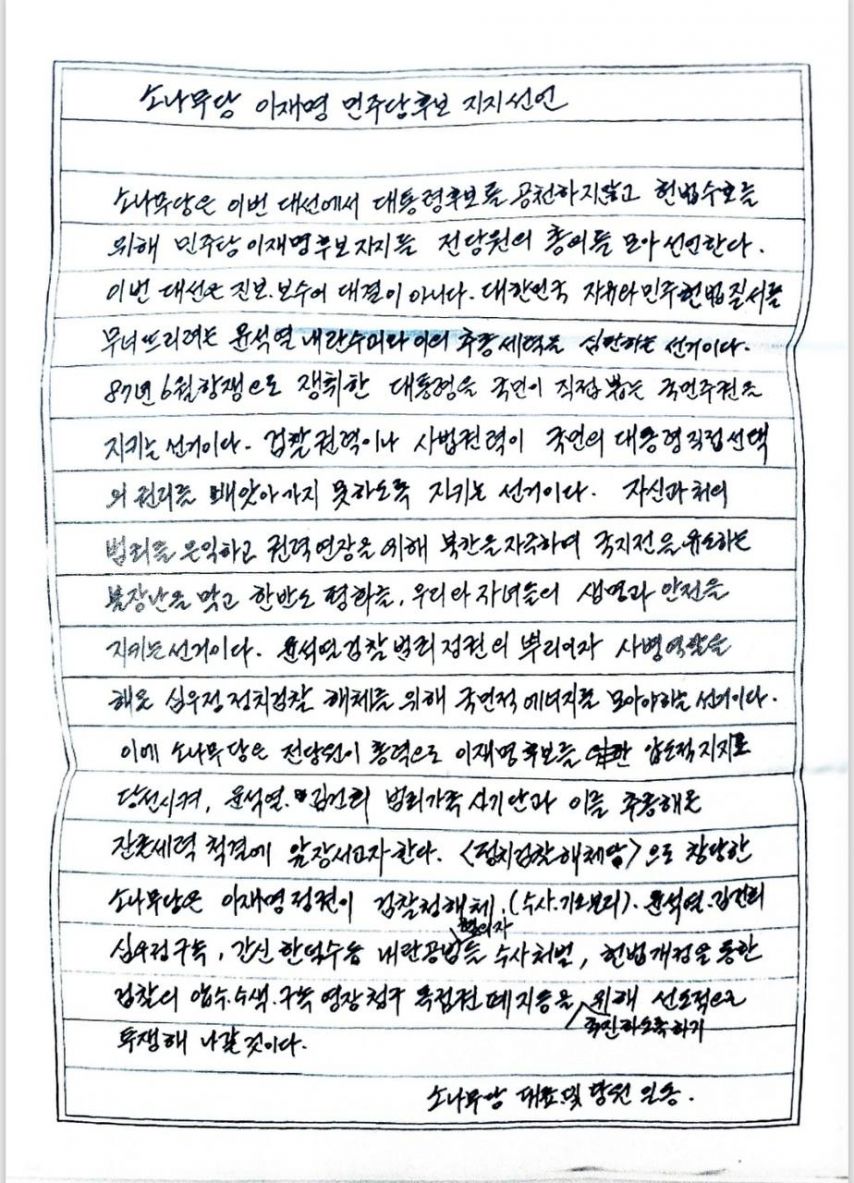 소나무당 이재명 민주당후보 지지선언
소나무당은 이번 대선에서 대통령후보를 공천하지않고 헌법수호를
위해 민주당 이재명후보 지지를 전당원의 총의를 모아 선언한다.
이번 대선은 진보.보수의 대결이 아니다. 대한민국 자유와 민주헌법질서를
무너뜨리려는 윤석열 내란수괴와 이의 추종세력을 심판하는 선거이다.
87년 6월항쟁으로 쟁취한 대통령을 국민이 직접 뽑는 국민주권을
지키는 선거이다. 검찰권력이나 사법권력이 국민의 대통령직접선택
의 권리를 빼앗아가지 못하도록 지키는 선거이다. 자신과 처의
범죄를 은익하고 권력연장을 위해 북한을 자극하여 국지전을 유도하는
불장난을 막고 한반도 평화를, 우리와 자녀들의 생명과 안전을
지키는 선거이다. 윤석열검찰범죄정권의 뿌리이자 사병역할을
해온 심우정 정치검찰 해체를 위해 국민적 에너지를 모아야하는 선거이다.
이에 소나무당은 전당원이 총력으로 이재명후보를 압도적지지로
당선시켜, 윤석열. 김건희 범죄가족 사기단과 이를 추종해온
잔존세력 척결에 앞장서고자한다. <정치검찰해체당>으로 창당한
소나무당은 이재명정권이 검찰청해체.(수사.기소분리). 윤석열.김건희
심우정구속, 간신 한덕수등 내란공범혐의자들 수사처벌, 헌법개정을 통한
검찰의 압수.수색.구속영장청구 독점권 폐지등을 추진하도록하기 위해 선도적으로
투쟁해 나갈것이다.
소나무당 대표및 당원 일동.